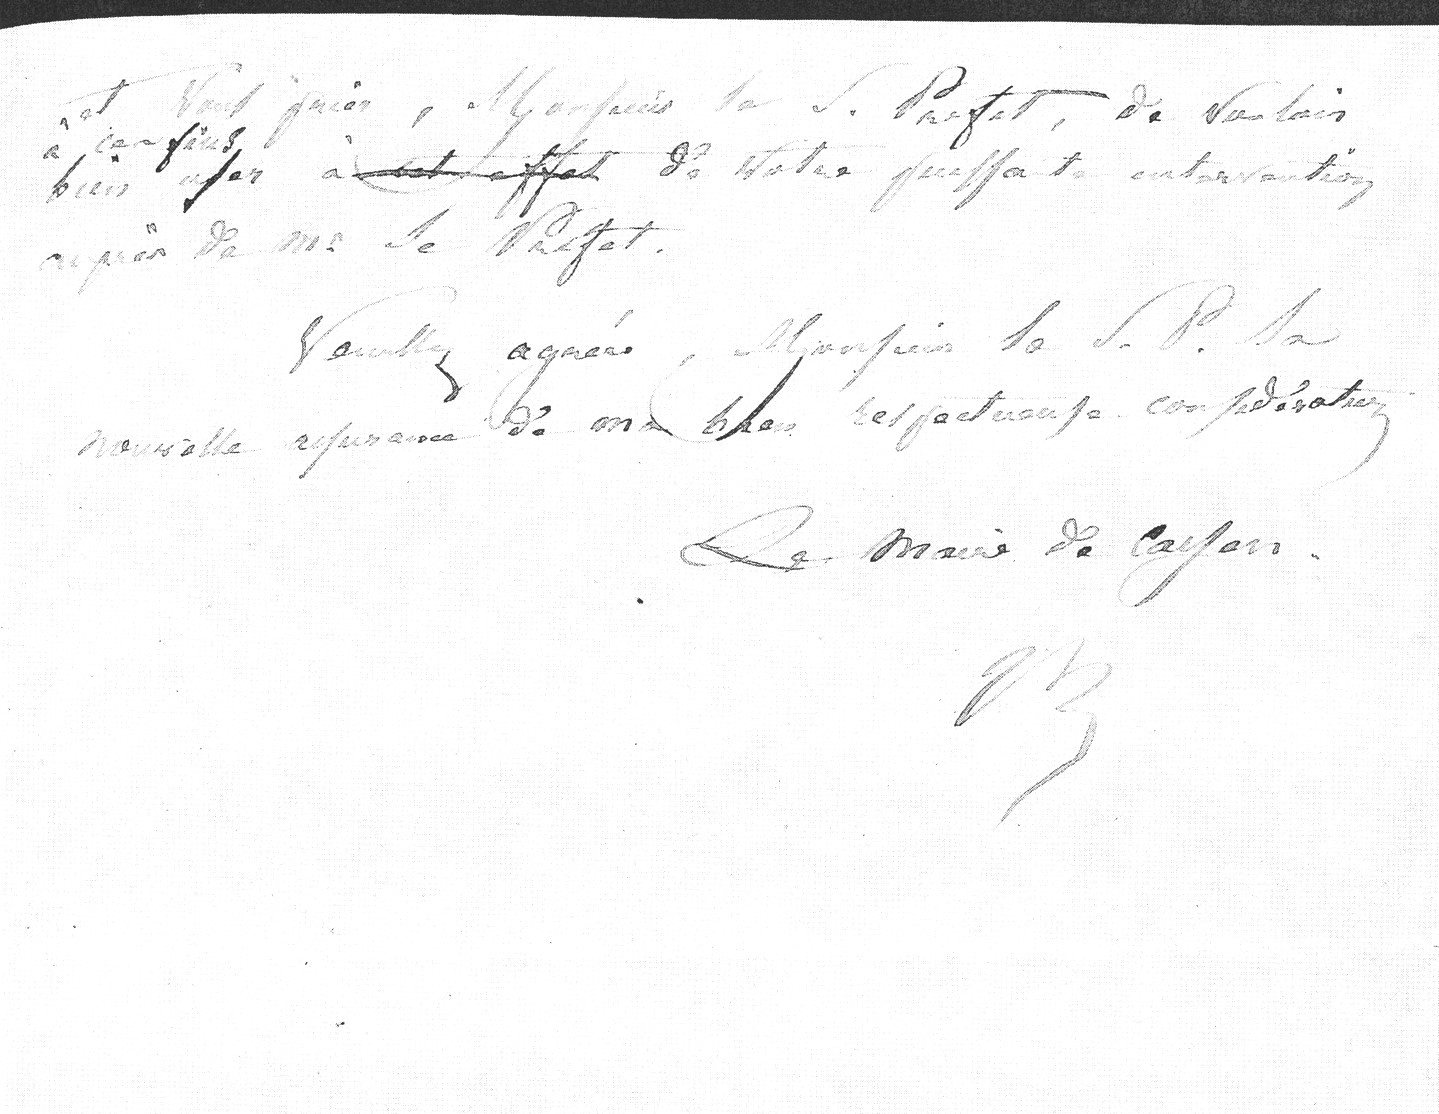 et vous prier, Monsieur le S. Préfet, de vouloir
à ces fins
bien user à cet effet de votre puissante intervention
auprès de Mr le Préfet.
Veuillez agréer, Monsieur le S. P. la
nouvelle assurance de ma bien respectueuse considération
Le Maire de